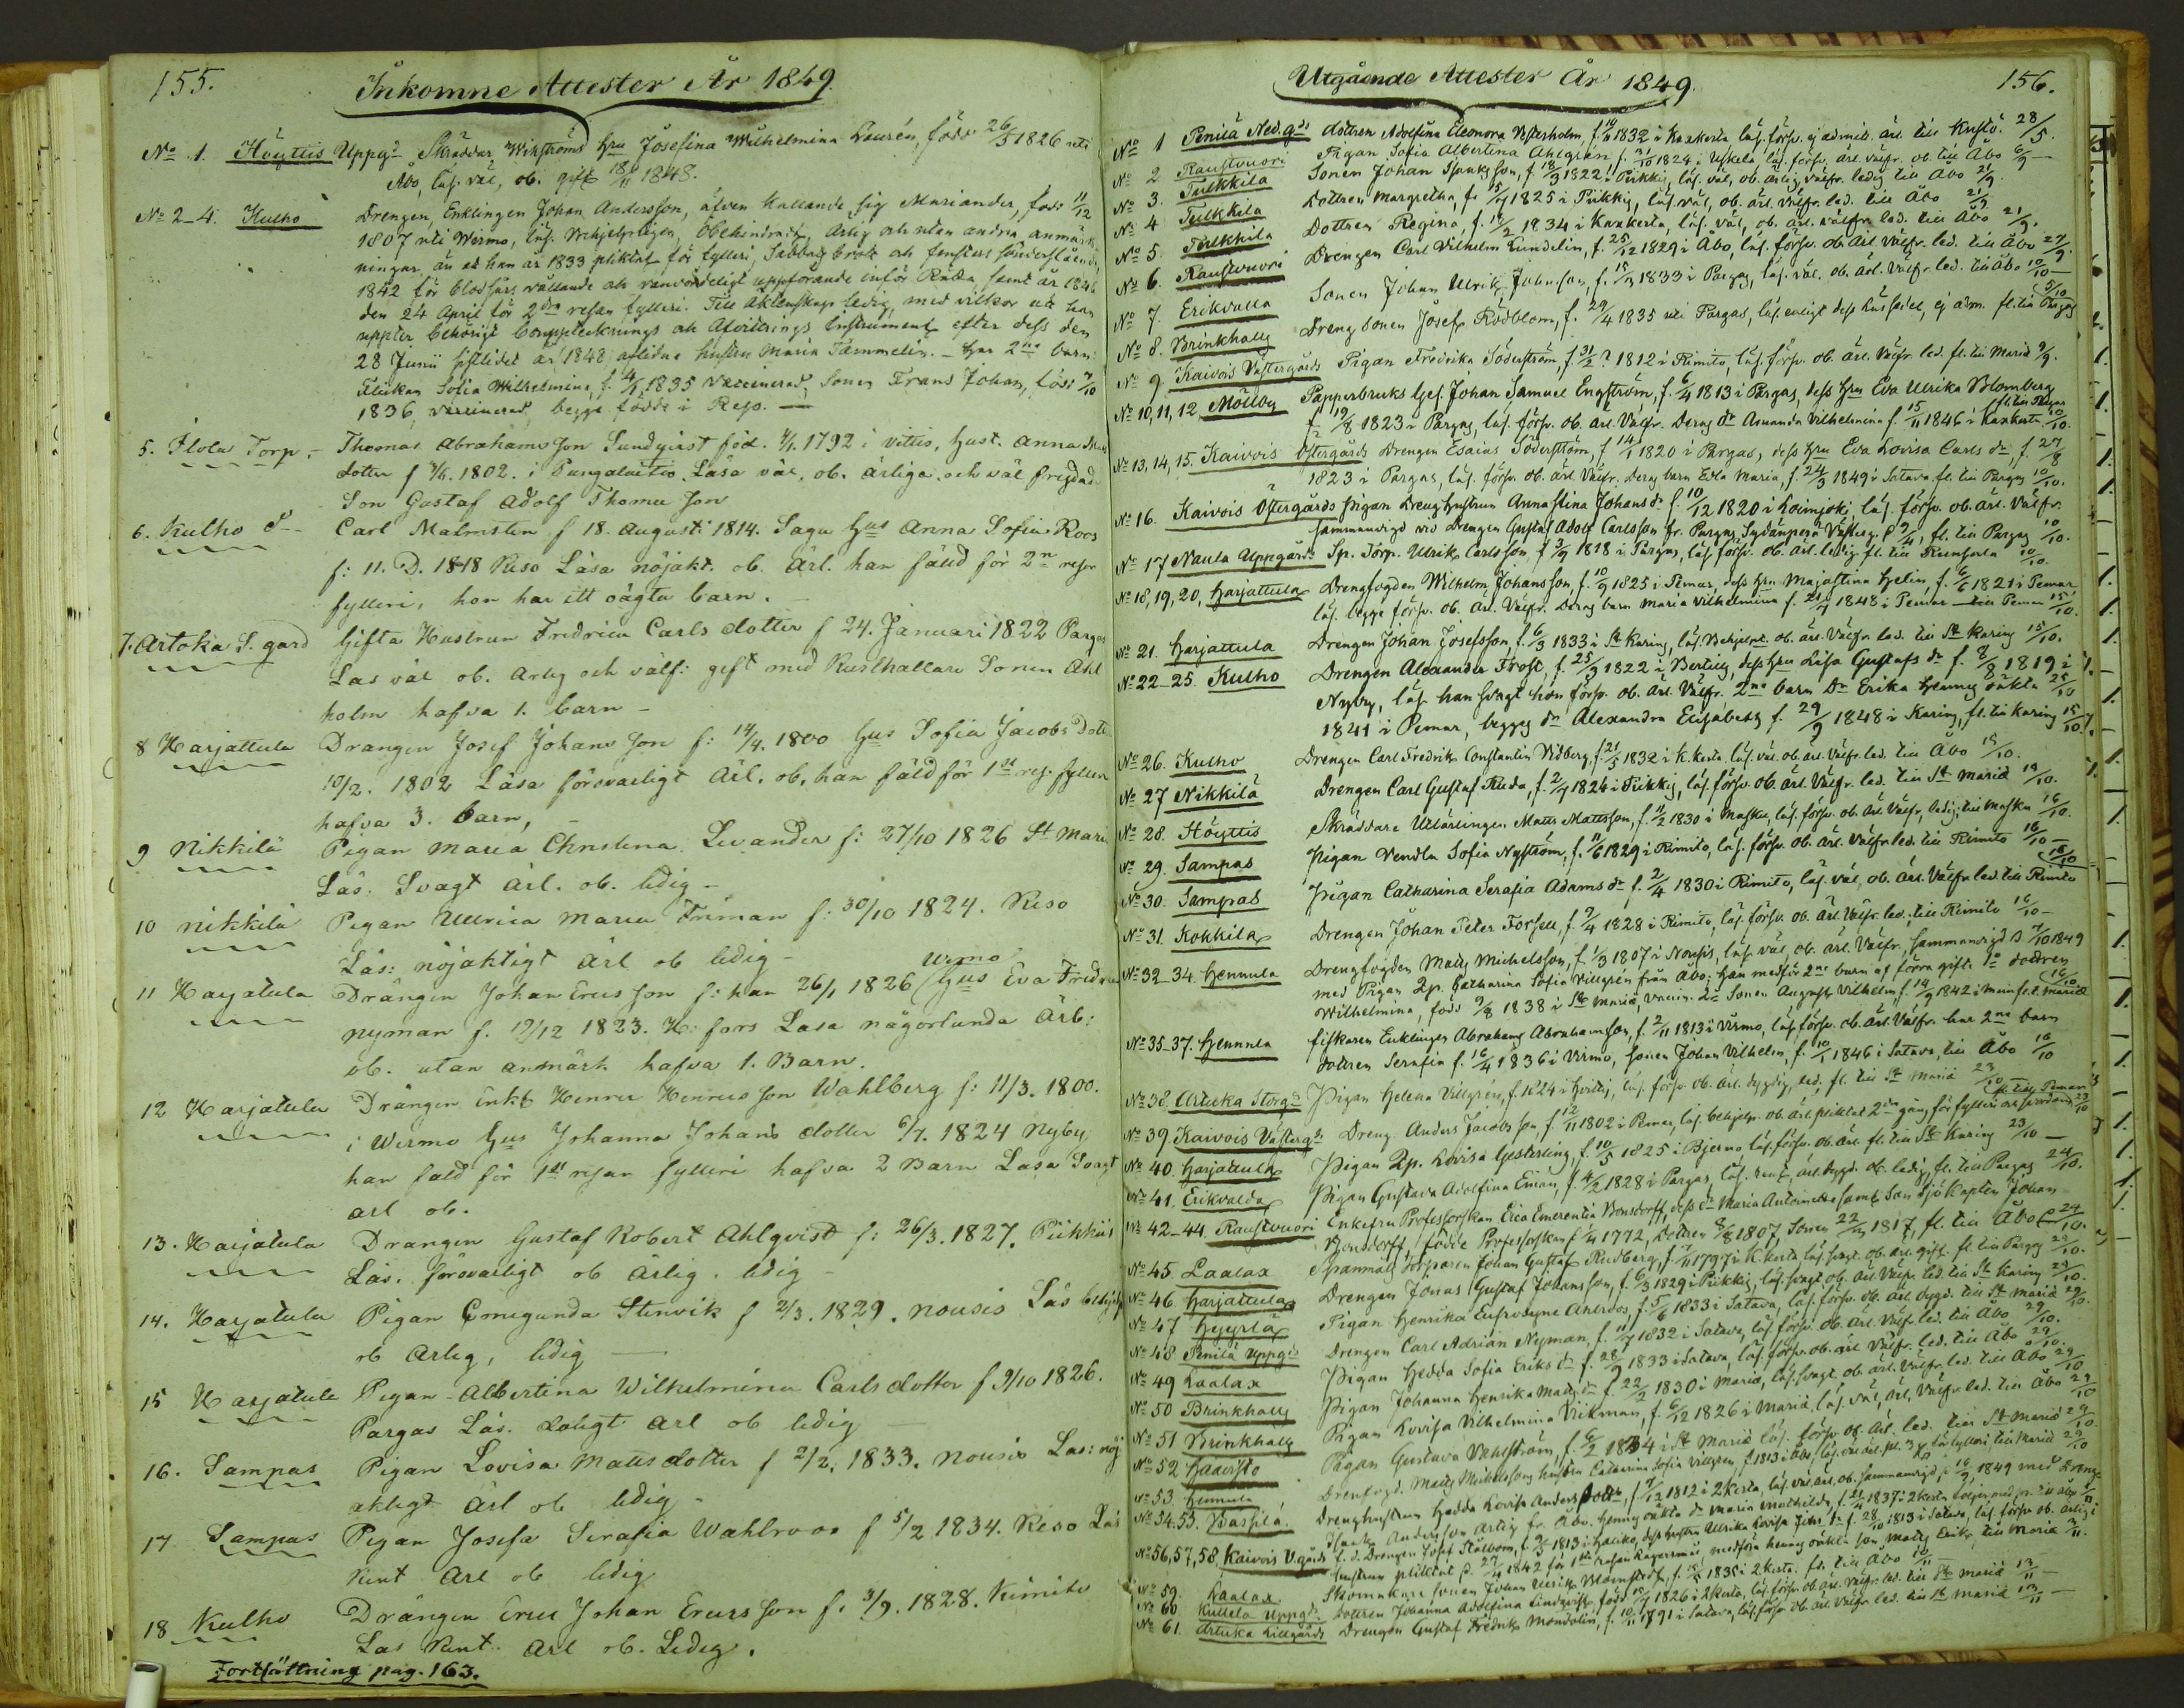 155.
Inkomne Attester År 1849.
No 1. Höyttis Uppgd Skräddar Wikströms Hru Josefina Wilhelmina Laurén, född 26/5 1826 uti
Åbo, läs. väl, ob. gift 18/11 1848.
No 2-4. Kulho Drengen, Enklingen Johan Andersson, äfven kallande sig Mariander, född 11/12
1807 uti Wirmo, läs. obehindradt, ärlig och utan andra anmärk-
ningar, än at han år 1833 pliktat för fylleri, Sabbats brott och fensters sönderslående,
1842 för vållande och uppförande inför Rätta samt år 1846
den 24 April för 2dra resan fylleri. Till äktenskap ledig, med vilkor att han
uppter behörigt och Afvittrings Instrument efter dess den
28 Junii sistlidet år 1848 aflidna hustru Maria Tammelin. - har 2ne barn:
Flickan Sofia Wilhelmina, f. 4/1 1835 vaccinerad, Sonen Frans Johan, född 7/10
1836, vaccinerad, begge födde i Reso.
5. Ilola Torp - Thomas Abrahams Son Sundqvist föd. 4/1. 1792 i Vittis, Hust. Anna
dotter f 4/6. 1802. i Pungalaitio. Läsa väl, ob. ärliga och väl frejdad
Son Gustaf Adolf Thomæ Son
6. Kulho Carl Malmsten f 18. Augusti 1814. Sagu Hus Anna Sofia Roos
f: 11. D. 1818 Reso Läsa nöjakt. ob. Ärl. han fäld för 2n resor
fylleri, hon har ett oägta barn.
7. Artoka S. gård Gifta Hustrun Fredrica Carls dotter f 24. Januari 1822 Pargas
Läs väl ob. Ärlig och välf: gift med Rusthållare Sonen Ahl
holm hafva 1. barn -
8 Harjattula Drängen Josef Johans Son f: 14/4. 1800 Hus Sofia Jacobs dott
10/2. 1802 Läsa försvarligt Ärl. ob. han fäld för 1sta res. fylleri
hafva 3. barn, -
9 Nikkilä Pigan Maria Christina Levander f: 27/10 1826 St Marie
Läs. Svagt ärl. ob. ledig -
10 Nikkilä Pigan Ullrica Maria Friman f: 30/10 1824. Reso
Läs: nöjaktigt ärl ob ledig -
11 Harjatula Drängen Johan Ericsson f: han 26/1 1826 Wirmo Hus Eva Fredrica
Nyman f. 19/12 1823. H: fors Läsa någorlunda Ärl:
ob. utan anmärk hafva 1. Barn.
12 Harjatula Drängen Enkl Henric Henrics Son Wahlberg f: 11/3. 1800.
i Wirmo Hus Johanna Johans dotter 6/7. 1824 Nyby
han fäld för 1sta resan fylleri hafva 2 Barn Läsa Svagt
ärl ob.
13. Harjatula Drängen Gustaf Robert Ahlqvist f: 26/3. 1827. Pikkis
Läs. försvarligt ob ärlig. ledig -
14. Harjatula Pigan Cunigunda Stenvik f 2/3. 1829. Nousis Läs behjelp
ob ärlig, ledig
15 Harjatula Pigan Albertina Wilhelmina Carls dotter f 9/10 1826.
Pargas Läs. dåligt ärl ob ledig
16. Sampas Pigan Lovisa Matts dotter f 2/2. 1833. Nousis Läs: nöj
aktigt ärl ob ledig -
17 Sampas Pigan Josefa Serafia Wahlroos f 5/2 1834. Reso Läs
Rent Ärl ob ledig
18 Kulho Drängen Eric Johan Ericsson f: 3/9. 1828. Kimito
Läs Rent. Ärl ob. Ledig.
Fortsättning pag. 163.
156.
Utgående Attester År 1849.
No 1 Penilä Ned.gd dottren Adolfina Eleonora Vesterholm, f. 19/11 1832 i Kaxkerta, läs. försv. ej admit. ärl. till Kustö 28/5.
No 2 Raustvuori Pigan Sofia Albertina Ahlgren f. 31/10 1824 i Uskela, läs. försv. ärl. välfr. ob. till Åbo 6/9
No 3. Tulkkila Sonen Johan Isaksson, f. 18/3 1822 i Pikkis, läs. väl, ob. ärlig välfr. ledig till Åbo 21/9.
No 4 Tulkkila Dottren Margretha, f. 15/7 1825 i Pikkis, läs. väl, ob. ärl. välfr. led. till Åbo 21/9
No 5. Tulkkila Dottren Regina, f. 14/2 1834 i Kaxkerta, läs. väl, ob. ärl. välfr. led. till Åbo 21/9.
No 6. Raustvuori Drengen Carl Vilhelm Lundelin, f. 25/12 1829 i Åbo, läs. försv. ob. ärl. välfr. led. till Åbo 27/9
No 7. Erikvalla Sonen Johan Ulrik Johansson, f. 15/3 1833 i Pargas, läs. väl. ob. ärl. välfr. led. till Åbo 10/10
No 8. Brinkhall Dreng Sonen Josef Rödblom, f. 29/4 1835 uti Pargas, läs. enligt dess ej adm. fl. till Pargas 5/10
No 9 Kaivois Västergårds Pigan Fredrika Söderström, f. 31/2? 1812 i Rimito, läs. försv. ob. ärl. välfr. led. fl. till Mariæ 9/9.
No 10, 11, 12, Mölby Papperbruks Ges. Johan Samuel Engström, f. 6/4 1813 i Pargas, dess Hru Eva Ulrika Blomberg
f 19/8 1823 i Pargas, läs. försv. ob. ärl. välfr. Deras dr Amanda Vilhelmina f. 15/11 1846 i Kaxkerta fl. till Pargas 10/10.
No 13, 14, 15. Kaivois Östergårds Drengen Esaias Söderström, f 14/1 1820 i Pargas, dess Hru Eva Lovisa Carls dr, f. 27/8
1823 i Pargas, läs. försv. ob. ärl. välfr. Deras barn Edla Maria, f. 24/3 1849 i Satava fl. till Pargas 10/10.
No 16. Kaivois Östergårds Pigan Dreng hustrun Annastina Johans dr f. 10/12 1820 i Loimjoki, läs. försv. ob. ärl. välfr.
sammanvigd wid Drengen Gustaf Adolf Carlsson fr. Pargas fl. till Pargas 10/10.
No 17 Naula Uppgårds Sp. Torp. Ulrik Carlsson f 3/9 1818 i Pargas, läs. försv. ob. ärl. ledig fl. till 10/10.
No 18, 19, 20, Harjattula Drengfogden Wilhelm Johansson f. 10/9 1825 i Pemar, dess Hru Majastina Helin, f. 6/6 1821 i Pemar
läs. begge försv. ob. ärl. välfr. Deras barn Maria Vilhelmina f. 21/9 1848 i Pemar till Pemar 15/10.
No 21. Harjattula Drengen Johan Josefsson, f. 6/3 1833 i St Karins, läs. behjelpl. ob. ärl. välfr. led. till St Karins 15/10.
No 22-25. Kulho Drengen Alexander Frost, f. 25/3 1822 i Bertils, dess Hru Lisa Gustafs dr f. 8/8 1819 i
Nyby, läs. han svagt hon försv. ob. ärl. välfr. 2ne barn dr Erika hennes oäkta 25/10
1841 i Pemar, begges dr Alexandra Elisabeth f. 29/9 1848 i Karins, fl. till Karins 15/10.
No 26. Kulho Drengen Carl Fredrik Constantin Vidberg f 21/5 1832 i K.kerta läs. väl ob. ärl. välfr. led. till Åbo 15/10.
No 27 Nikkilä Drengen Carl Gustaf Ruda, f. 2/7 1824 i Pikkis, läs. försv. ob. ärl. välfr. led. till St Mariæ 19/10.
No 28. Höyttis Skräddare Utlärlingen Matts Mattsson, f. 11/2 1830 i Masku, läs. försv. ob. ärl. välfr. ledig, till Masku 16/10.
No 29. Sampas Pigan Vendla Sofia Nyström, f. 11/6 1829 i Rimito, läs. försv. ob. ärl. välfr. led. till Rimito 16/10
No 30. Sampas Pigan Catharina Serafia Adams dr f. 2/4 1830 i Rimito, läs. väl, ob. ärl. välfr. led. till Rimito 16/10
No 31. Kokkila Drengen Johan Peter Forsell, f. 9/4 1828 i Rimito, läs. försv. ob. ärl. välfr. led. till Rimito 16/10
No 32-34. Hennula Drengfogden Matts Michelsson, f. 1/3 1807 i Nousis, läs. väl, ob. ärl. välfr., sammanvigd d. 7/10 1849
med Pigan Qp. Catharina Sofia Villgrén från Åbo; han medför 2ne barn af förra gift. 1o dottren
Wilhelmina, född 9/8 1838 i St Mariæ, 2o Sonen August Vilhelm, f. 19/9 1842 16/10
No 35-37. Hennula fiskaren Enklingen Abraham Abrahamsson, f. 2/11 1813 i Virmo, läs. försv. ob. ärl. välfr. har 2ne barn
dottren Serafia f. 16/4 1836 i Virmo, Sonen Johan Vilhelm, f. 10/5 1846 i Satava, till Åbo 16/10
No 38. Artuka Storgd Pigan Helena Villgrén, f. 1824 i, läs. försv. ob. ärl. dygdig, led. fl. till St Mariæ 23/10
No 39 Kaivois Västergd Dreng Anders Jacobsson, f 12/11 1802 i Pemar, läs. behjelpl. ob. ärl. pliktat 2dra gång för fylleri fl. till Pemar 23/10
No 40. Harjattula Pigan Qp. Lovisa Gesterling, f. 10/5 1825 i Bjerno läs. försv. ob. ärl. fl. till St Karins 23/10
No 41. Erikvalla Pigan Gustava Adolfina Eman, f. 4/2 1828 i Pargas, läs. rent, ärl. dygd. ob. ledig, fl. till Pargas 24/10.
No 42-44. Raustvuori Enkefru Professorskan Erica Emerentia Bonsdorff, dess dr Maria Antoinette samt Son Sjö Kapten Johan
Bonsdorff, födde Professorskan 1/4 1772, Dottren 8/8 1807, Sonen 22/2 1817, fl. till Åbo 24/10.
No 45. Laalax Spanmåls Torparen Johan Gustaf Rudberg, f. 7/11 1797 i K.kerta läs. svagt. ob. ärl. gift. fl. till Pargas 29/10.
No 46. Harjattula Drengen Jonas Gustaf Johansson, f. 6/3 1829 i Pikkis, läs. svagt ob. ärl. välfr. led. till St Karins 29/10.
No 47 Hyyrlä Pigan Henrika Eufrosyne Ahlroos, f. 5/6 1833 i Satava, läs. försv. ob. ärl. dygd. till St Mariæ 29/10.
No 48 Penilä Uppgd Drengen Carl Adrian Nyman, f. 11/7 1832 i Satava, läs. försv. ob. ärl. välfr. led. till Åbo 29/10.
No 49 Laalax Pigan Hedda Sofia Eriks dr f. 28/9 1833 i Satava, läs. försv. ob. ärl. välfr. led. till Åbo 29/10.
No 50 Brinkhall Pigan Johanna Henrika Matts dr f. 22/2 1830 i Mariæ, läs. svagt. ob. ärl. välfr. led. till Åbo 29/10
No 51 Brinkhall Pigan Lovisa Vilhelmina Vikman, f. 6/12 1826 i Mariæ, läs. väl, ärl. välfr. led. till Åbo 29/10
No 52 Haaristo Pigan Gustava Vahlström, f. 6/2 1834 i St Mariæ läs. försv. ob. ärl. led. till St Mariæ 29/10.
No 53. Hennula Drenfogd. Matts Michelssons hustru Catharina Sofia Villgren, f. 1813 i Åbo, läs. väl för fylleri till Mariæ 29/10
No 54.55. Vassila. Drenghustrun Hedda Lovisa Anders dottr, f 7/12 1812 i 2Kerta, läs. väl. ärl. ob. sammanvigd 16/9 1849 med Dreng
Isaak Andersson ärlig fr. Åbo. Hennes oäkta dr Maria Mathilda, f. 21/4 1837 i 2Kerta
No 56, 57, 58, Kaivois V.gårds f. d. Drengen Josef Stålbom, f. 1813 i Haliko, dess hustru Ulrika Lovisa f. 28/10 1813 i Satava, läs. försv. ob. ärlig
hustrun pliktat d. 27/4 1842 för 1sta resan lägersmål, medföra hennes oäkta son Matts Erik till Mariæ 2/11.
No 59. Laalax Skomakare Sonen Johan Ulrik Blomstedt, f. 1835 i 2Kerta. fl. till Åbo 10/11
No 60. Kullela Uppgd. Dottren Johanna Adolfina Lindqvist, född 15/7 1826 i 2Kerta, läs. försv. ob. ärl. välfr. led. till St Mariæ 13/11
No 61. Artuka Lillgårds Drengen Gustaf Fredrik Mondolin, f. 10/11 1791 i Satava, läs. försv. ob. ärl. välfr. led. till St Mariæ 13/11